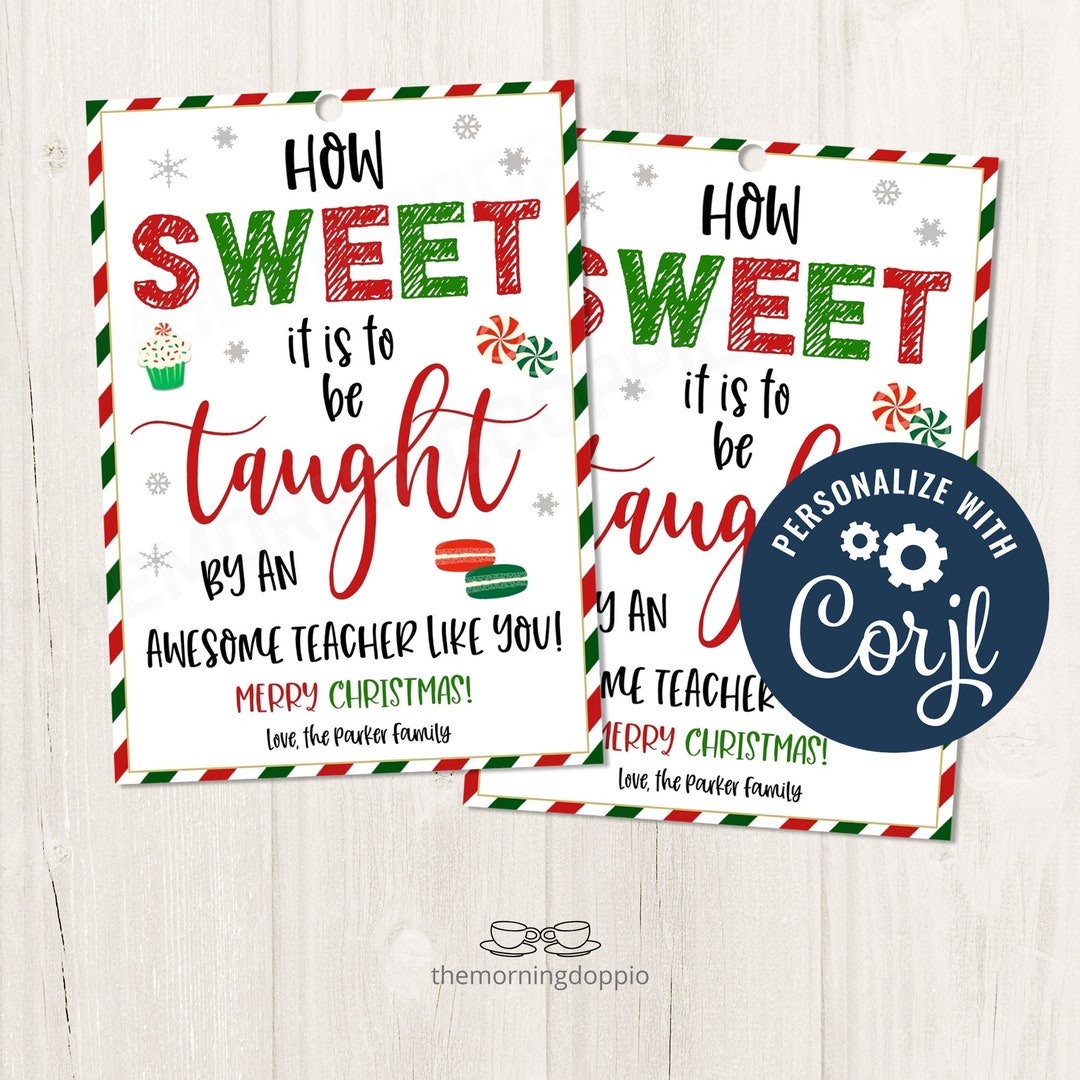 HOW
SWEET
it is to
be
taught
BY AN
AWESOME TEACHER LIKE YOU!
MERRY CHRISTMAS!
Love, the Parker Family
HOW
SWEET
it is to
be
taug
Y AN
ME TEACHER
MERRY CHRISTMAS!
Love, the Parker Family
PERSONALIZE WITH
Corjl
themorningdoppio